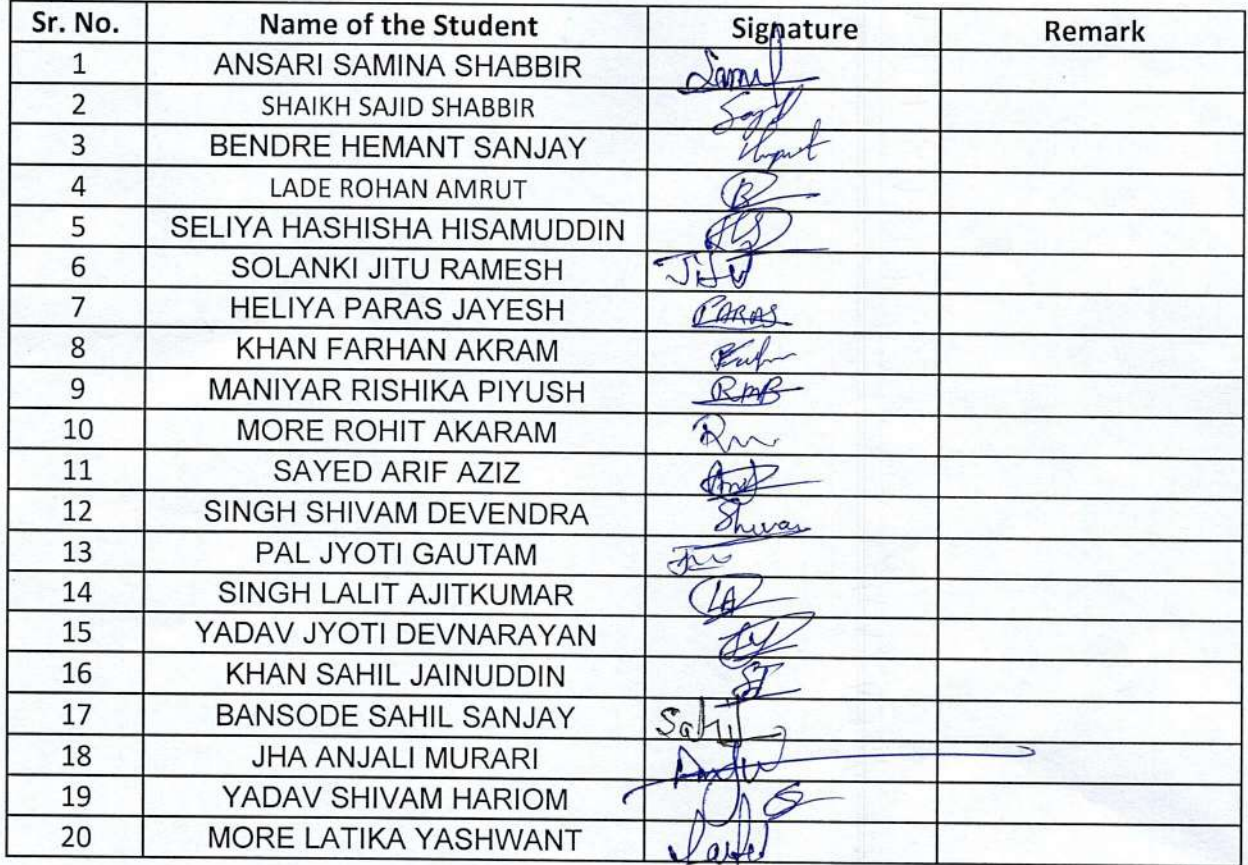 Sr. No. Name of the Student Signature Remark
1 ANSARI SAMINA SHABBIR
2 SHAIKH SAJID SHABBIR
3 BENDRE HEMANT SANJAY
4 LADE ROHAN AMRUT
5 SELIYA HASHISHA HISAMUDDIN
6 SOLANKI JITU RAMESH Jitu
7 HELIYA PARAS JAYESH PARAS
8 KHAN FARHAN AKRAM
9 MANIYAR RISHIKA PIYUSH
10 MORE ROHIT AKARAM
11 SAYED ARIF AZIZ
12 SINGH SHIVAM DEVENDRA Shivam
13 PAL JYOTI GAUTAM
14 SINGH LALIT AJITKUMAR
15 YADAV JYOTI DEVNARAYAN
16 KHAN SAHIL JAINUDDIN
17 BANSODE SAHIL SANJAY Sahil
18 JHA ANJALI MURARI
19 YADAV SHIVAM HARIOM
20 MORE LATIKA YASHWANT